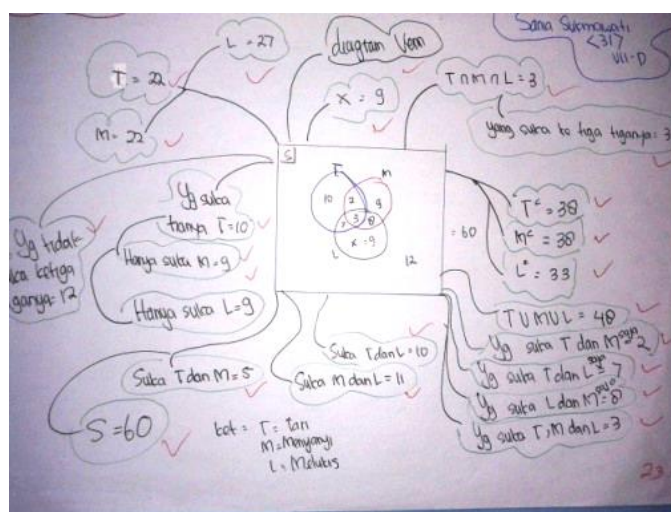 Sana Sukmawati
<31>
VII-D
L = 27
T = 22
M = 22
diagram Venn
x = 9
T∩M∩L = 3
yang suka ke tiga tiganya = 3
S
T
M
10
2
9
7
3
8
L
x = 9
12
= 60
Yg suka
hanya T = 10
Hanya suka M = 9
Hanya suka L = 9
Yg tidak
suka ketiga
ganya = 12
T^c = 38
M^c = 38
L^c = 33
T U M U L = 48
Yg suka T dan M saja = 2
Yg suka T dan L saja = 7
Yg suka L dan M saja = 8
Yg suka T, M dan L = 3
Suka T dan L = 10
Suka M dan L = 11
Suka T dan M = 5
S = 60
ket = T = tari
M = Menyanyi
L = Melukis
23